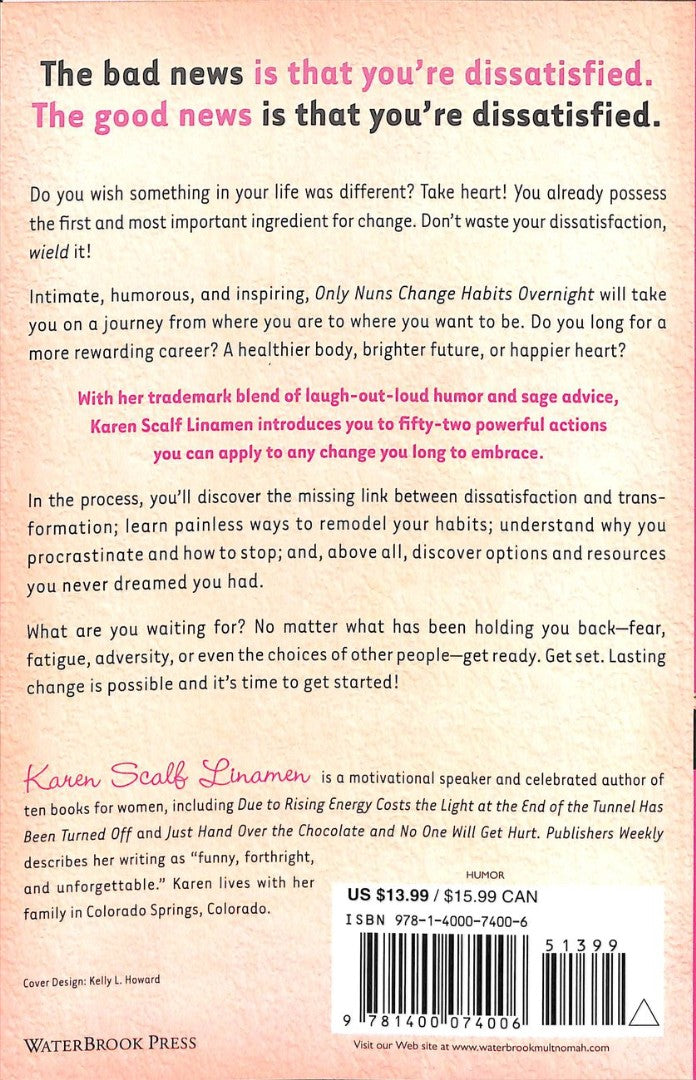 The bad news is that you're dissatisfied.
The good news is that you're dissatisfied.
Do you wish something in your life was different? Take heart! You already possess
the first and most important ingredient for change. Don't waste your dissatisfaction,
wield it!
Intimate, humorous, and inspiring, Only Nuns Change Habits Overnight will take
you on a journey from where you are to where you want to be. Do you long for a
more rewarding career? A healthier body, brighter future, or happier heart?
With her trademark blend of laugh-out-loud humor and sage advice,
Karen Scalf Linamen introduces you to fifty-two powerful actions
you can apply to any change you long to embrace.
In the process, you'll discover the missing link between dissatisfaction and trans-
formation; learn painless ways to remodel your habits; understand why you
procrastinate and how to stop; and, above all, discover options and resources
you never dreamed you had.
What are you waiting for? No matter what has been holding you back—fear,
fatigue, adversity, or even the choices of other people—get ready. Get set. Lasting
change is possible and it's time to get started!
Karen Scalf Linamen is a motivational speaker and celebrated author of
ten books for women, including Due to Rising Energy Costs the Light at the End of the Tunnel Has
Been Turned Off and Just Hand Over the Chocolate and No One Will Get Hurt. Publishers Weekly
describes her writing as "funny, forthright,
and unforgettable." Karen lives with her
family in Colorado Springs, Colorado.
HUMOR
US $13.99 / $15.99 CAN
ISBN 978-1-4000-7400-6
51399
9 781400 074006
Cover Design: Kelly L. Howard
WATERBROOK PRESS
Visit our Web site at www.waterbrookmultnomah.com